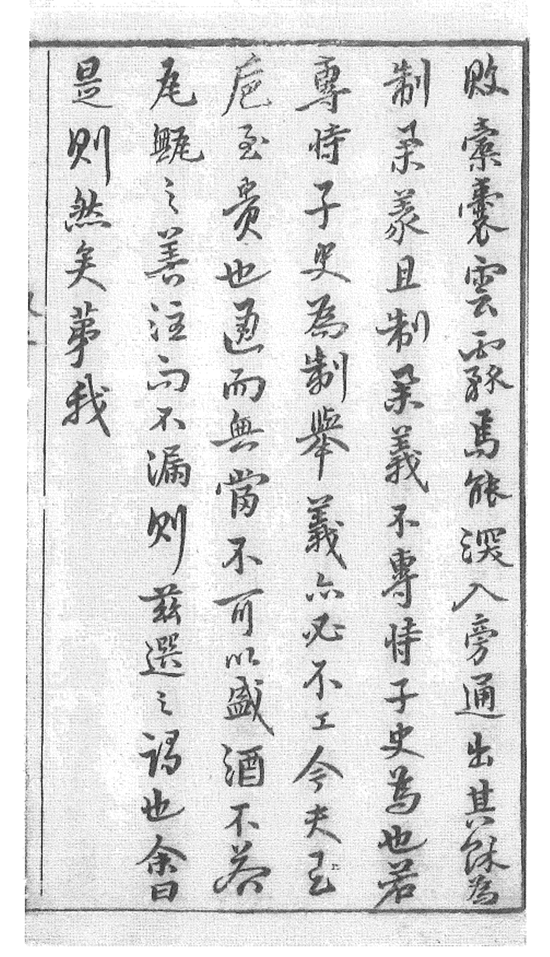 敗橐囊雲霧焉能深入旁通出其餘為
制舉義且制舉義不專恃子史為也若
專恃子史為制舉義亦必不工今夫玉
巵至貴也通而無當不可以盛酒不若
瓦甀之善注而不漏則茲選之謂也余曰
是則然矣苐我